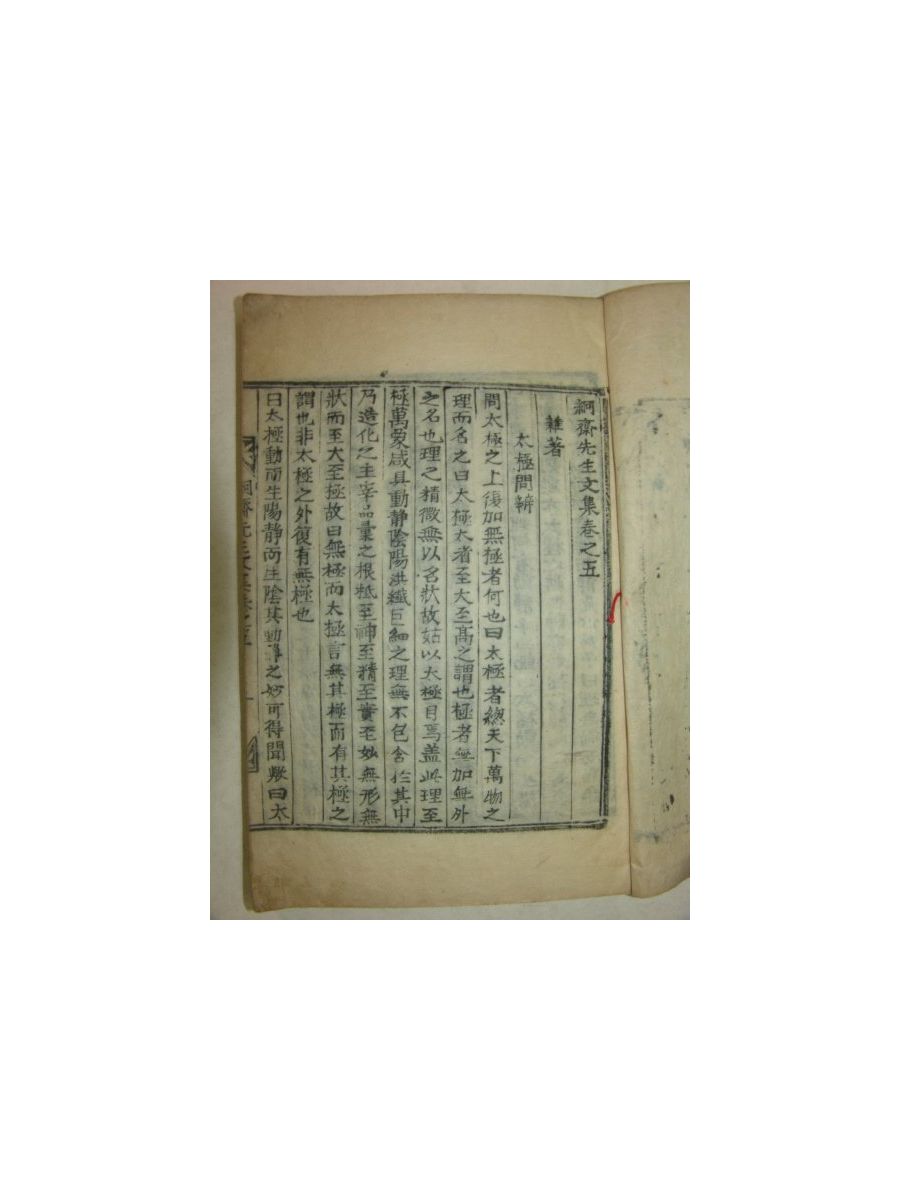 絅齋先生文集卷之五
雜著
太極問辨
問太極之上復加無極者何也曰太極者總天下萬物之
理而名之曰太極太者至大至高之謂也極者無加無外
之名也理之精微無以名狀故姑以太極目焉盖此理至
極萬象咸具動靜陰陽洪纖巨細之理無不包含於其中
乃造化之主宰品彙之根柢至神至精至貴至妙無形無
狀而至大至極故曰無極而太極言無其極而有其極之
謂也非太極之外復有無極也
曰太極動而生陽靜而生陰其動靜之妙可得聞歟曰太